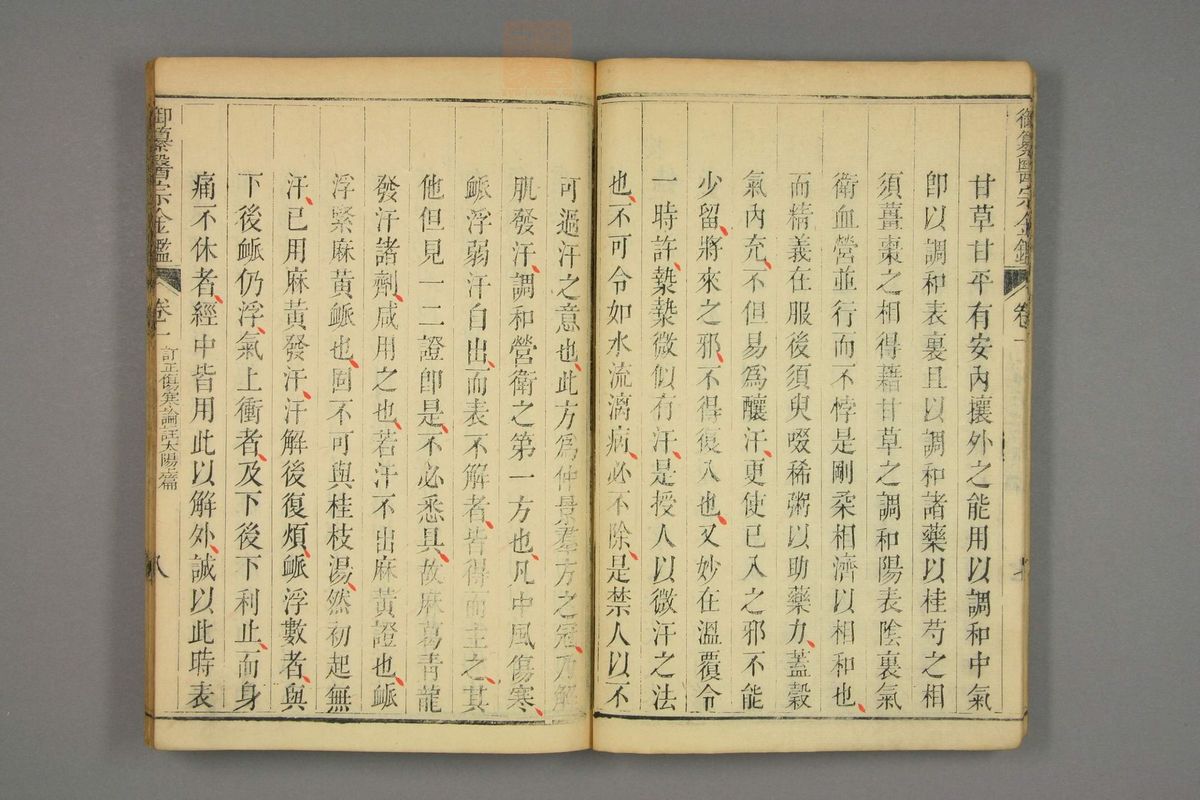 御纂醫宗金鑑 卷一
甘草甘平有安內攘外之能用以調和中氣
卽以調和表裏且以調和諸藥以桂芍之相
須薑棗之相得藉甘草之調和陽表陰裏氣
衛血營並行而不悖是剛柔相濟以相和也
而精義在服後須臾啜稀粥以助藥力蓋穀
氣內充不但易爲釀汗更使已入之邪不能
少留將來之邪不得復入也又妙在溫覆令
一時許漐漐微似有汗是授人以微汗之法
也不可令如水流漓病必不除是禁人以不
可過汗之意也此方爲仲景羣方之冠乃解
肌發汗調和營衛之第一方也凡中風傷寒
脈浮弱汗自出而表不解者皆得而主之其
他但見一二證卽是不必悉具故麻葛靑龍
發汗諸劑咸用之也若汗不出麻黃證也脈
浮緊麻黃脈也固不可與桂枝湯然初起無
汗已用麻黃發汗汗解後復煩脈浮數者與
下後脈仍浮氣上衝者及下後下利止而身
痛不休者經中皆用此以解外誠以此時表
御纂醫宗金鑑 卷一 訂正傷寒論註太陽上篇 八